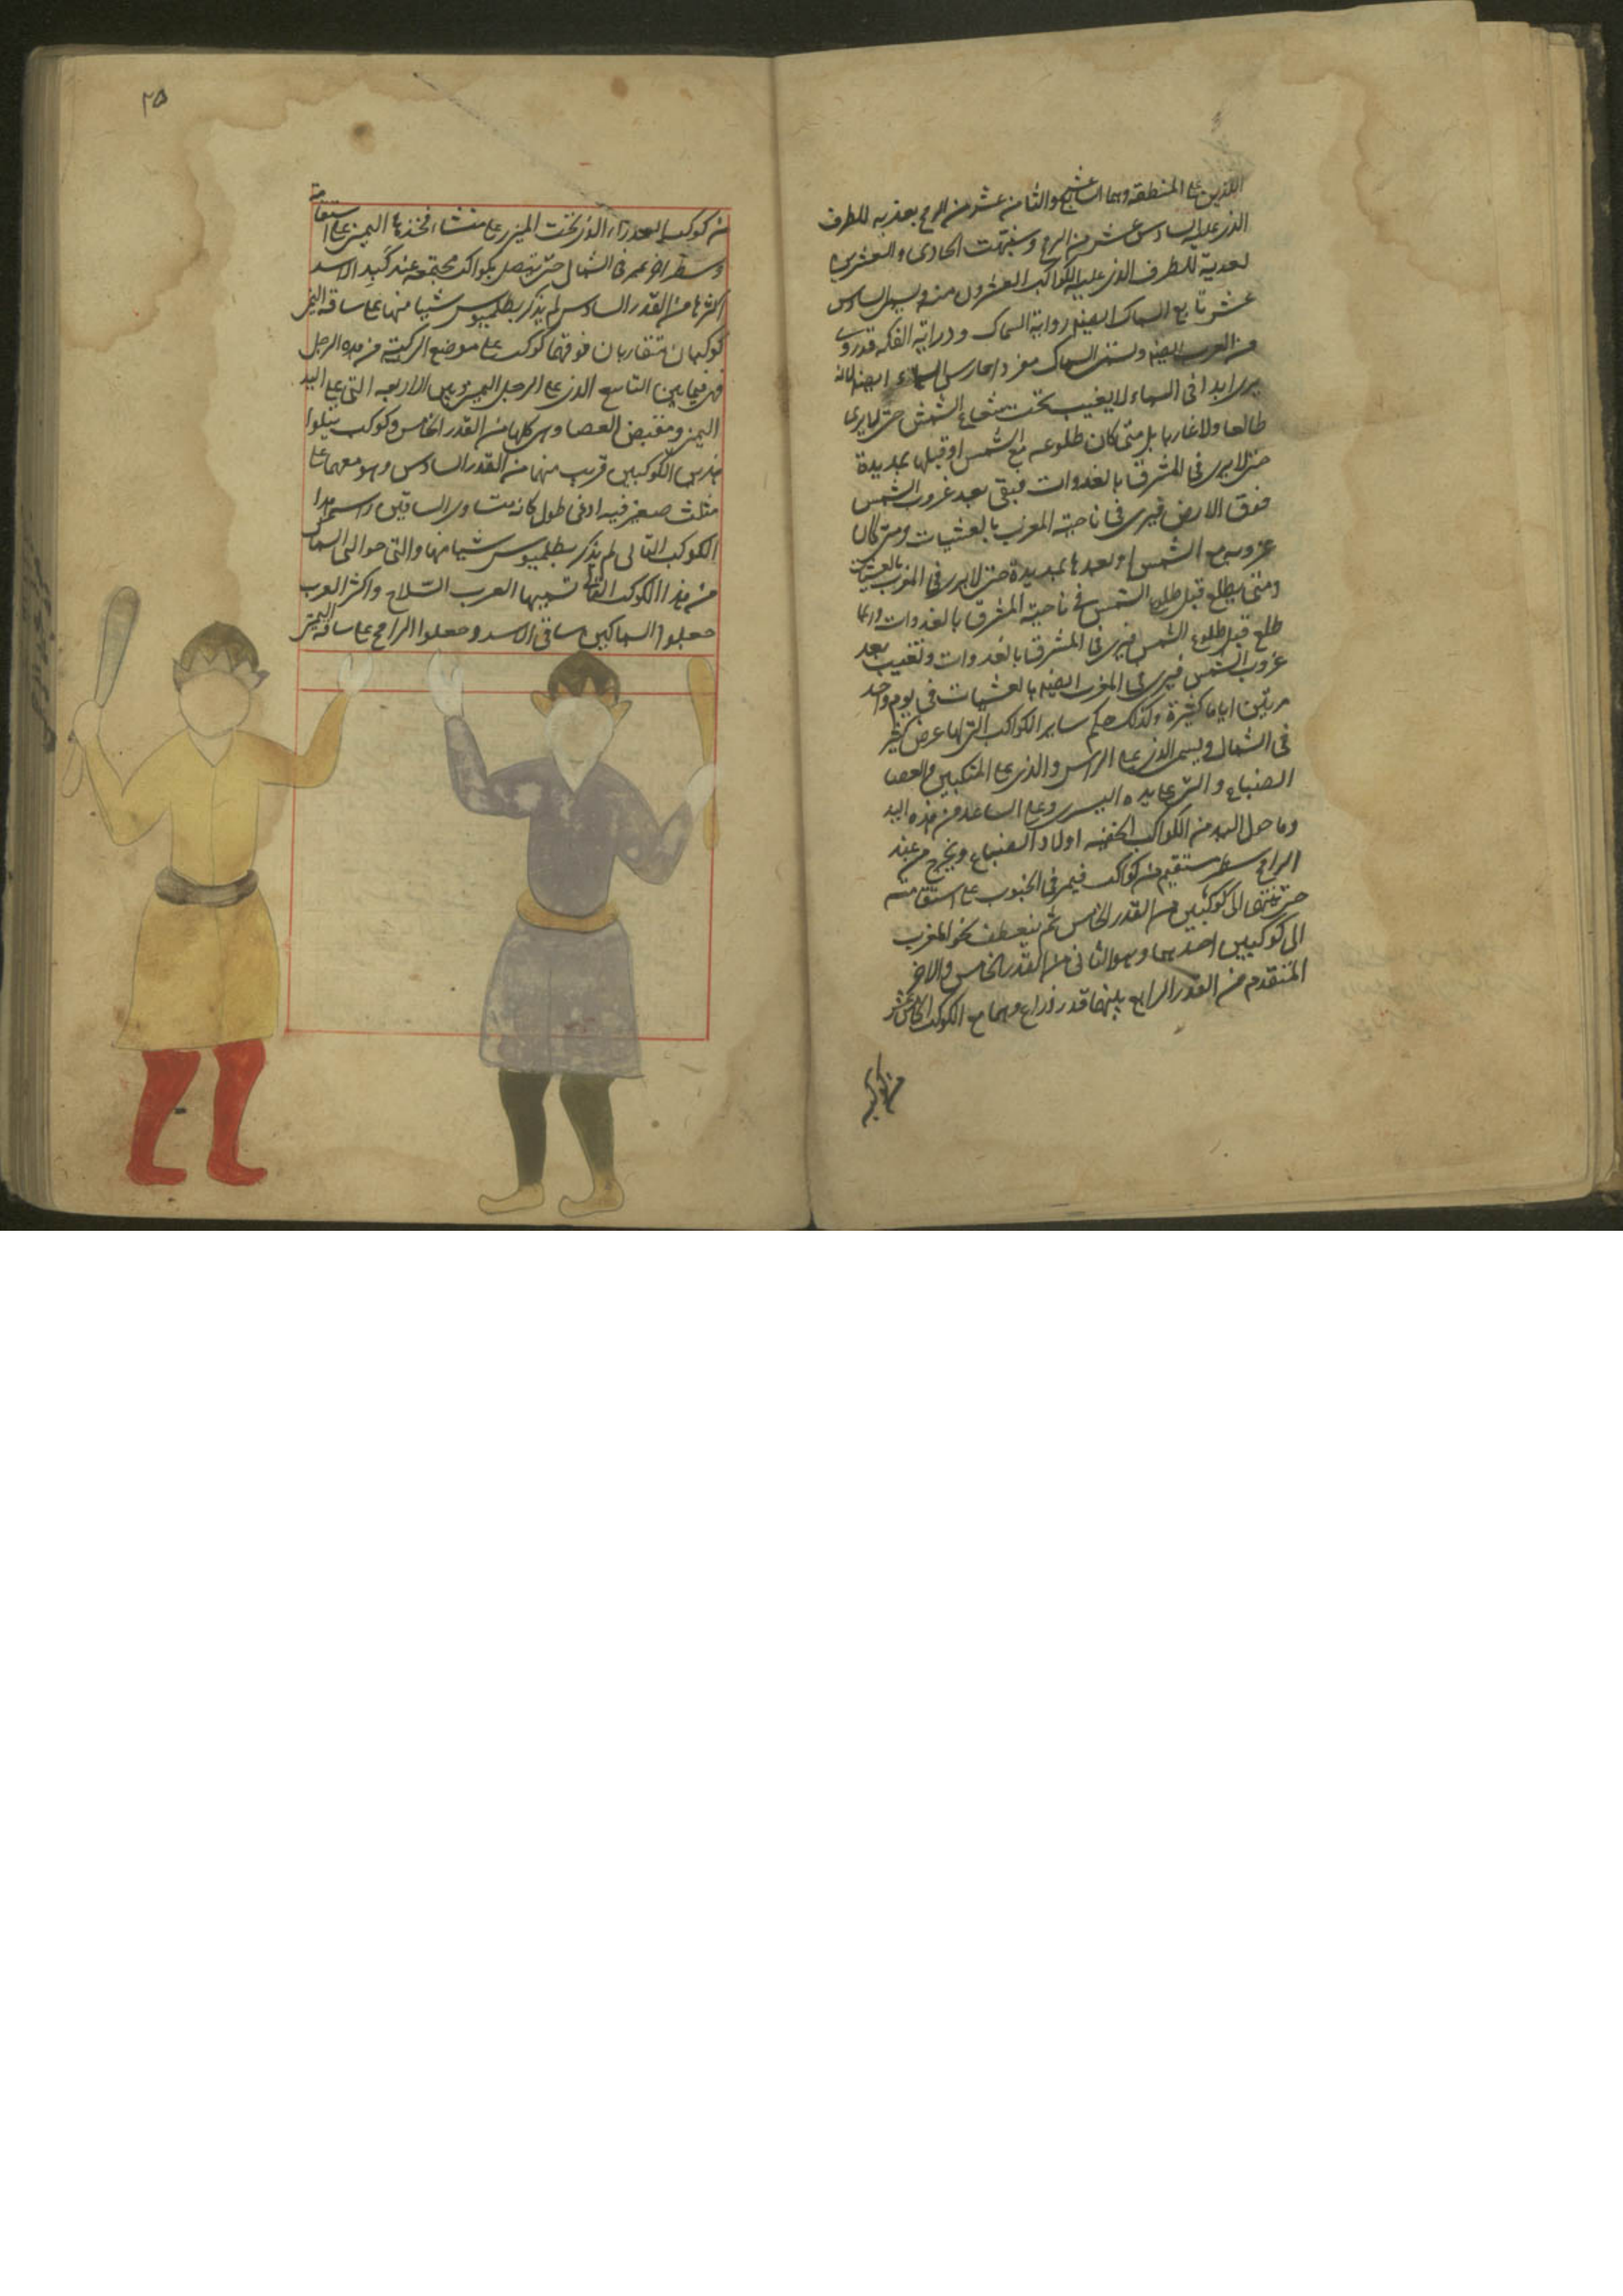 اللذين على المنطقة وهما السابع عشر والثامن عشر من الرمح بعذبه للطرف
الذى عليه السادس عشر من الرمح وشبهت الحادى والعشرين
لعذبة للطرف الذى عليه الكواكب العشرون منه ويسمى السادس
عشر تابع السماك ايضا راية السماك وراية الفكه قد روى
من العرب ايضا وتسمى السماك مفردا حارس السماء ايضا لانه
يرى ابدا فى السماء لا يغيب تحت شعاع الشمس حتى لا يرى
طالعا ولا غاربا بل متى كان طلوعه مع الشمس او قبلها بمديدة
حتى لا يرى فى المشرق بالغدوات فيبقى بعد غروب الشمس
فوق الارض فيرى فى ناحية المغرب بالعشيات ومتى كان
غروبه مع الشمس او بعدها بمديدة حتى لا يرى فى المغرب بالعشيات
ومتى يطلع قبل طلوع الشمس فى ناحية المشرق بالغدوات وربما
طلع قبل طلوع الشمس فيرى فى المشرق بالغدوات وتغيب بعد
غروب الشمس فيرى فى المغرب ايضا بالعشيات فى يوم واحد
مرتين اياما كثيرة وكذلك حكم ساير الكواكب التى لها عرض كثير
فى الشمال ويسمى الذى على الراس والذى على المنكبين والعصا
الضباع والتى على يده اليسرى وعلى الساعد من هذه اليد
وما حول اليد من الكواكب الخفية اولاد الضباع ويخرج من عند
الرامح سطر مستقيم من كواكب فيمر فى الجنوب على استقامته
حتى ينتهى الى كوكبين من القدر الخامس ثم ينعطف نحو المغرب
الى كوكبين احدهما وهو الثانى من القدر الخامس والاخر
المتقدم من القدر الرابع بينهما قدر ذراع وهما مع الكوكب الخامس عشر
من كوكبة
٢٥
من كوكب العذراء الذى تحت الميزر على منشاء فخذها اليمنى على استقامة
وسطر اخر يمر فى الشمال حتى يتصل بكواكب مجتمعة عند كبد الاسد
اكثرها من القدر السادس لم يذكر بطلميوس شيئا منها على ساقه اليمنى
كوكبان متقاربان فوقهما كوكب على موضع الركبة من هذه الرجل
فهى فيما بين التاسع الذى على الرجل اليمنى وبين الاربعه التى على اليد
اليمنى ومقبض العصا وهى كلها من القدر الخامس وكوكب يتلوا
هذين الكوكبين قريب منهما من القدر السادس وهو معهما على
مثلث صغير فيه ادنى طول كانه متساوى الساقين
الكوكب التالى لم يذكر بطلميوس شيئا منها والتى حوالى السماك
من هذا الكوكب التالى تسميها العرب السلاح واكثر العرب
جعلوا السماكين ساقى الاسد وجعلوا الرامح على ساقه اليمنى